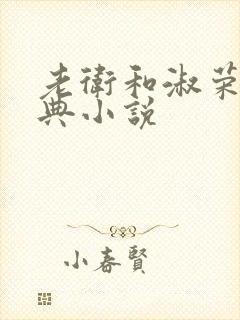 老衛和淑榮
典小說
小春賢